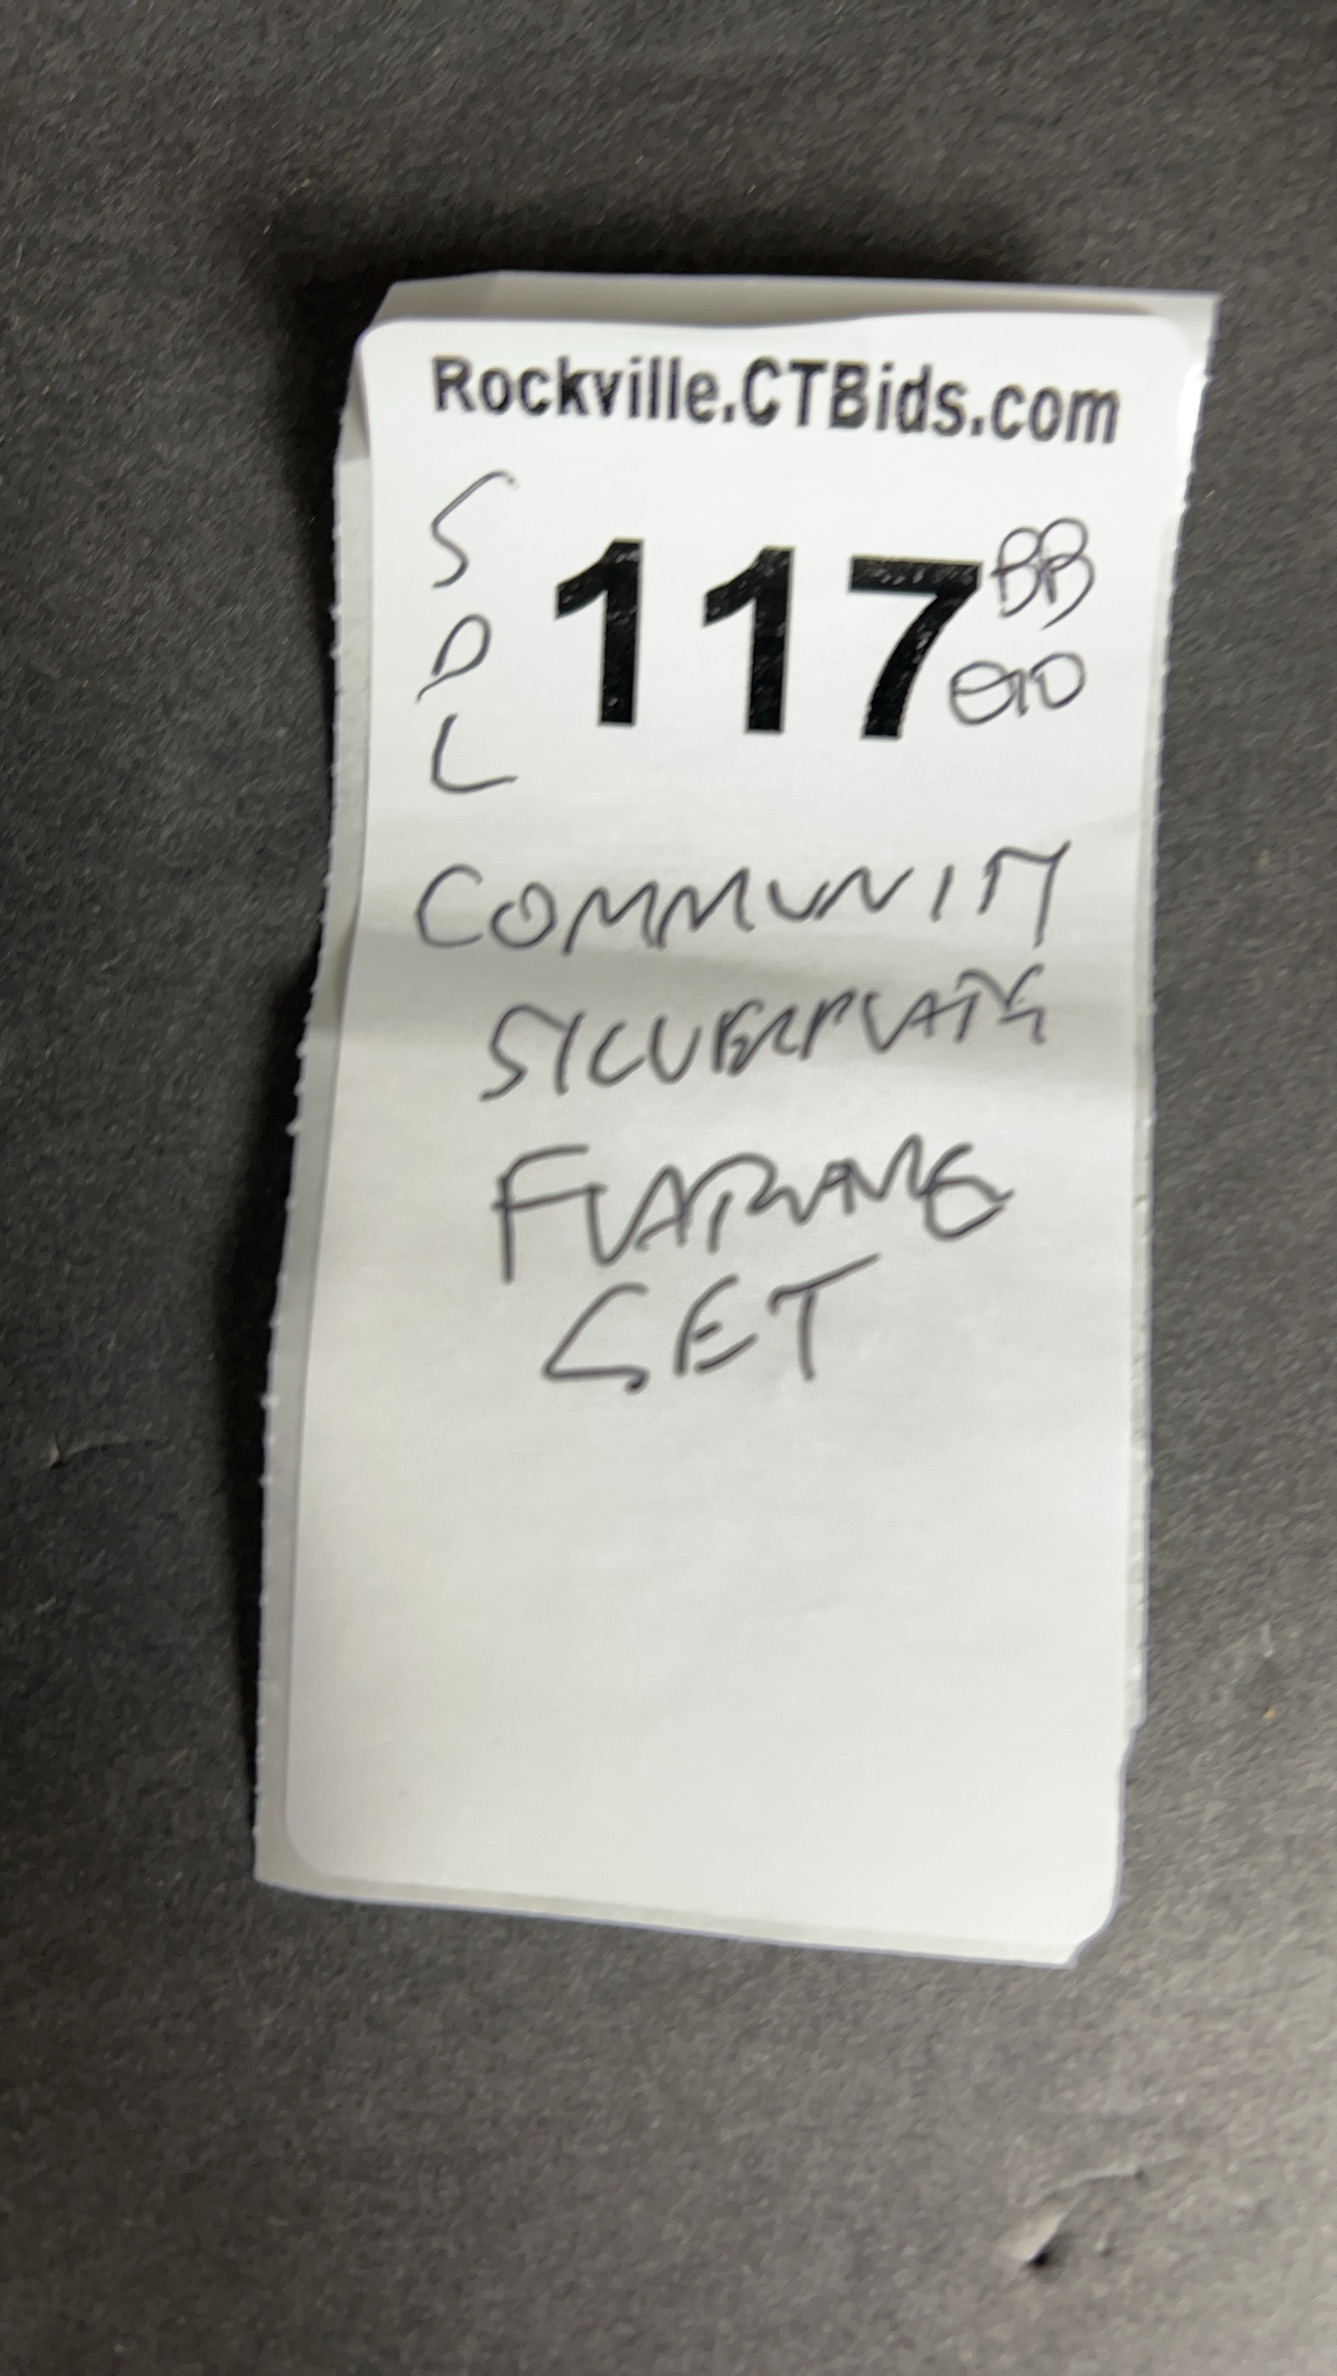 Rockville.CTBids.com
S
D
L
117
BB
COMMUNITY
SILVERPLATE
SET